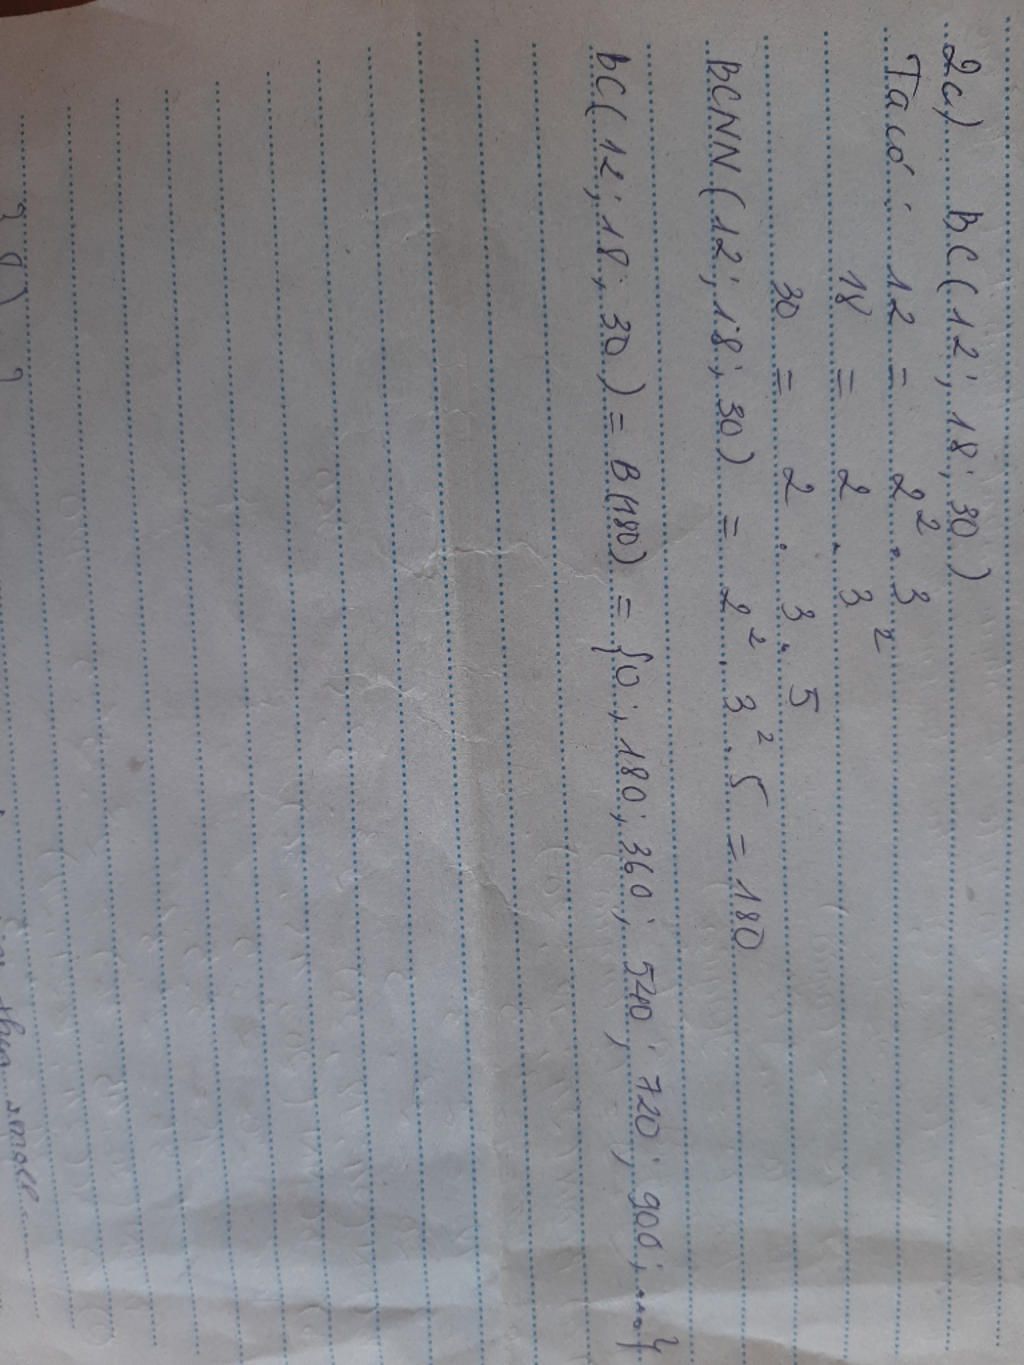 2a) BC(12; 18; 30)
Ta có: 12 = 2². 3
18 = 2 . 3²
30 = 2 . 3 . 5
BCNN(12; 18; 30) = 2². 3². 5 = 180
BC(12; 18; 30) = B(180) = {0; 180; 360; 540; 720; 900; ...}
than small